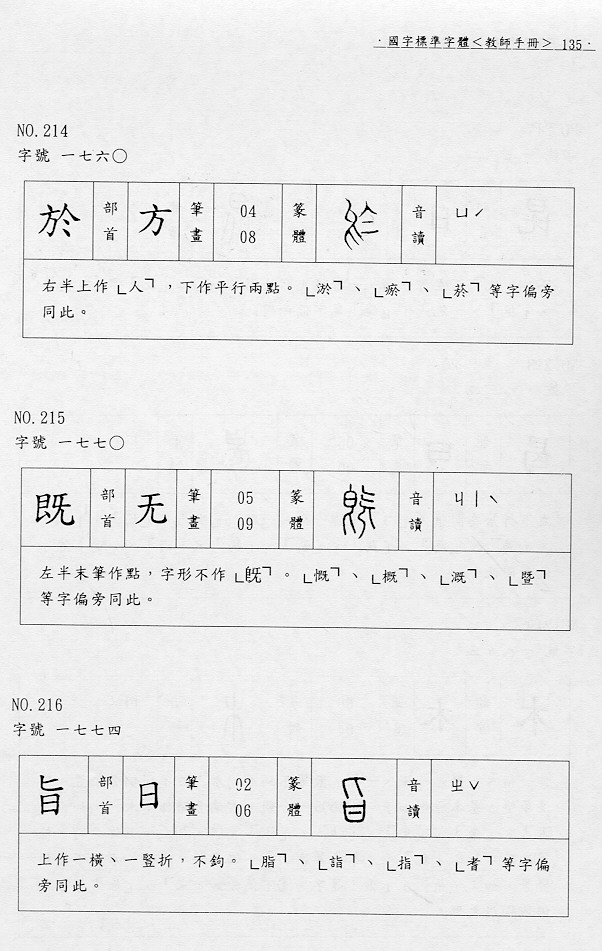 ·國字標準字體<教師手冊> 135·
NO.214
字號 一七六〇
於 部首 方 筆畫 04 08 篆體 音讀 ㄩˊ
右半上作「人」,下作平行兩點。「淤」、「瘀」、「菸」等字偏旁
同此。
NO.215
字號 一七七〇
既 部首 无 筆畫 05 09 篆體 音讀 ㄐㄧˋ
左半末筆作點,字形不作「旣」。「慨」、「概」、「溉」、「暨」
等字偏旁同此。
NO.216
字號 一七七四
旨 部首 日 筆畫 02 06 篆體 音讀 ㄓˇ
上作一橫、一豎折,不鉤。「脂」、「詣」、「指」、「耆」等字偏
旁同此。